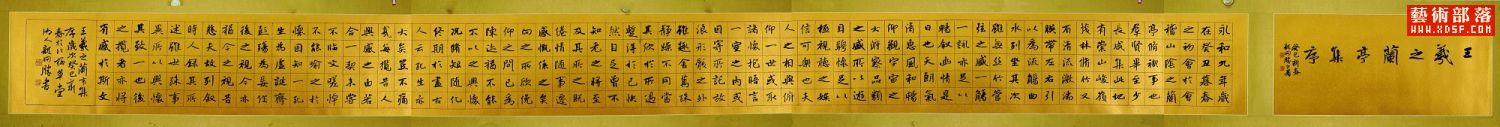 藝術部落
www.XDSF.com
王羲之蘭亭集序
癸巳新春
永和九年歲
在癸丑暮春
之初會于會
稽山陰之蘭
亭脩禊事也
羣賢畢至少
長咸集此地
有崇山峻嶺
茂林脩竹又
有清流激湍
暎帶左右引
以為流觴曲
水列坐其次
雖無絲竹管
弦之盛一觴
一詠亦足以
暢敘幽情是
日也天朗氣
清惠風和暢
仰觀宇宙之
大俯察品類
之盛所以遊
目騁懷足以
極視聽之娛
信可樂也夫
人之相與俯
仰一世或取
諸懷抱悟言
一室之內或
因寄所託放
浪形骸之外
雖趣舍萬殊
靜躁不同當
其欣於所遇
暫得於己快
然自足不
知老之將至
及其所之既
惓情隨事遷
感慨係之矣
向之所欣俛
仰之間已為
陳迹猶不能
不以之興懷
況脩短隨化
終期於盡古
人云死生亦
大矣豈不痛
哉每攬昔人
興感之由若
合一契未嘗
不臨文嗟悼
不能喻之於
懷固知一死
生為虛誕齊
彭殤為妄作
後之視今亦
猶今之視昔
悲夫故列敘
時人錄其所
述雖世殊事
異所以興懷
其致一也後
之攬者亦將
有感於斯文
王羲之蘭亭集
序歲次癸巳新
春於草堂